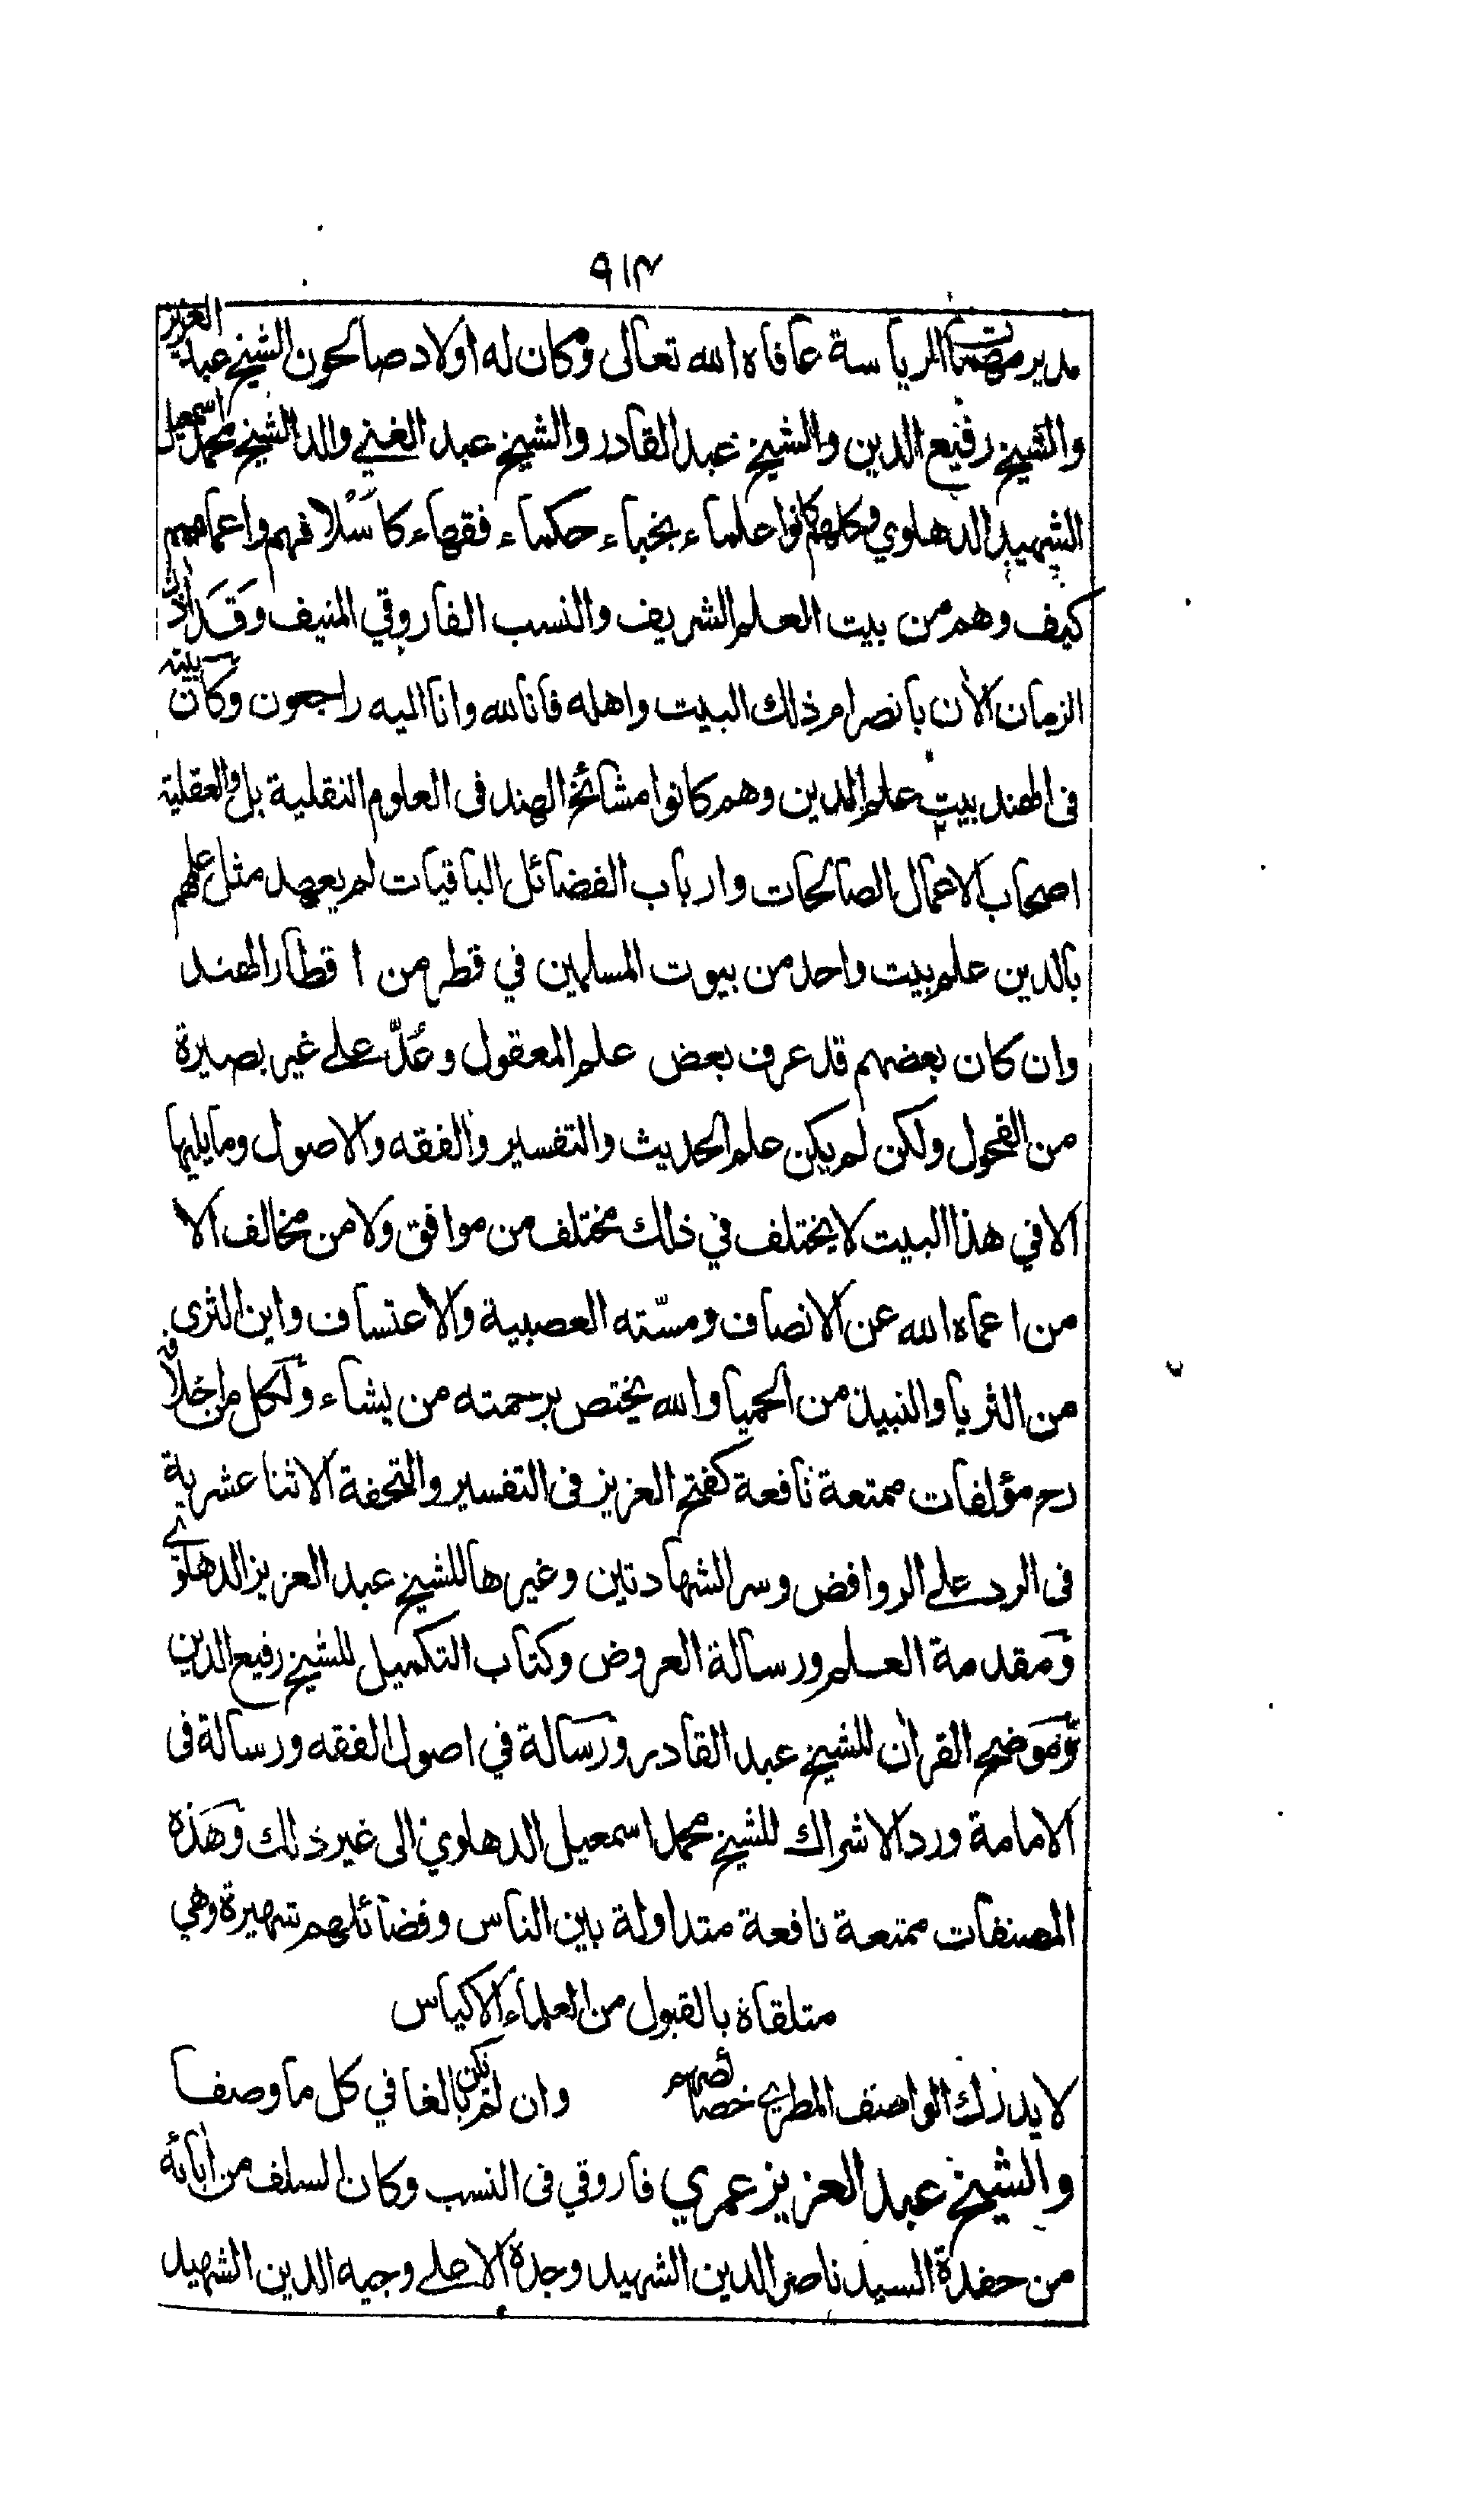 ٩١٤
مدير مهمات الرياسة عافاه الله تعالى وكان له اولاد صالحون الشيخ عبد العزيز
والشيخ رفيع الدين والشيخ عبد القادر والشيخ عبد الغني والد الشيخ محمد اسمعيل
الشهيد الدهلوي وكلهم كانوا علماء نجباء حكماء فقهاء كاسلافهم واعمامهم
كيف وهم من بيت العلم الشريف والنسب الفاروقي المنيف وقد اذن
الزمان الاٰن بانصرام ذلك البيت واهله فانا لله وانا اليه راجعون وكان بيته
فى الهند بيت علم الدين وهم كانوا مشائخ الهند فى العلوم النقلية بل والعقلية
اصحاب الاعمال الصالحات وارباب الفضائل الباقيات لم يعهد مثل علمهم
بالدين علم بيت واحد من بيوت المسلمين في قطر من اقطار الهند
وان كان بعضهم قد عرف بعض علم المعقول وعُدّ على غير بصيرة
من الفحول ولكن لم يكن علم الحديث والتفسير والفقه والاصول وما يليها
الا في هذا البيت لا يختلف في ذلك مختلف من موافق ولا من مخالف الا
من اعماه الله عن الانصاف ومسّته العصبية والاعتساف واين الثرى
من الثريا والنبيذ من الحميا والله يختص برحمته من يشاء ولكل من اخلافه
رح مؤلفات ممتعة نافعة كفتح العزيز فى التفسير والتحفة الاثنا عشرية
فى الرد على الروافض وسر الشهادتين وغيرها للشيخ عبد العزيز الدهلوي
ومقدمة العلم ورسالة العروض وكتاب التكميل للشيخ رفيع الدين
وموضح القراٰن للشيخ عبد القادر ورسالة في اصول الفقه ورسالة فى
الامامة ورد الاشراك للشيخ محمد اسمعيل الدهلوي الى غير ذلك وهذه
المصنفات ممتعة نافعة متداولة بين الناس وفضائلهم شهيرة وهي
متلقاة بالقبول من العلماء الاكياس
لا يدرك الواصف المطري خصائصهم وان لم يكن بالغا في كل ما وصفا
والشيخ عبد العزيز عمري فاروقي فى النسب وكان السلف من اٰبائه
من حفدة السيد ناصر الدين الشهيد وجده الاعلى وجيه الدين الشهيد